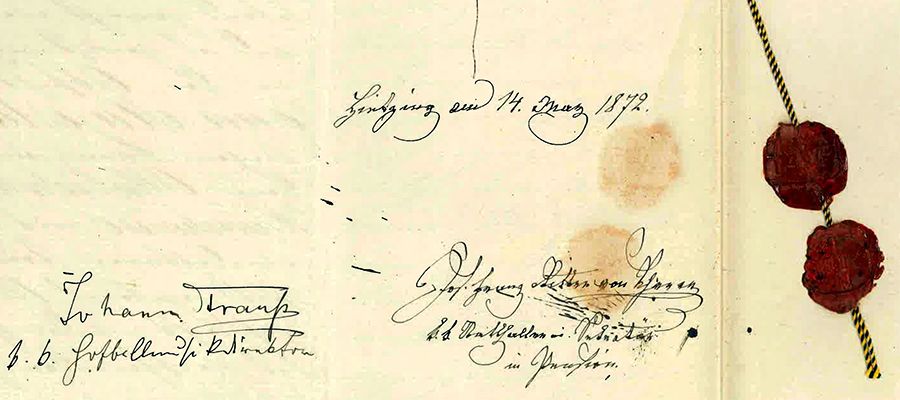 Hietzing am 14. May 1872.
Johann Strauß
k. k. Hofballmusikdirektor
Jos. Ritter von
k.k. Statthalterei Sekretär
in Pension.